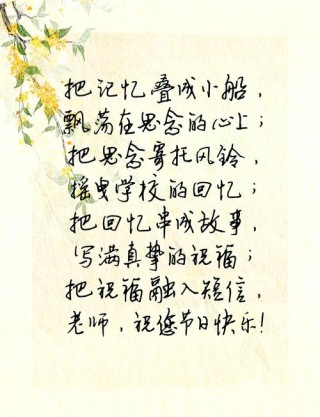 把记忆叠成小船，
飘荡在思念的心上；
把思念寄托风铃，
摇曳学校的回忆；
把回忆串成故事，
写满真挚的祝福；
把祝福融入短信，
老师，祝您节日快乐！